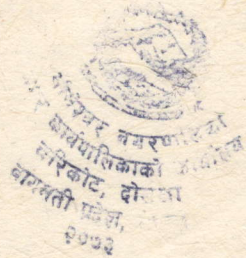 नगरपालिका
कार्यपालिकाको कार्यालय
चरिकोट, दोलखा
बागमती प्रदेश,
२०७३